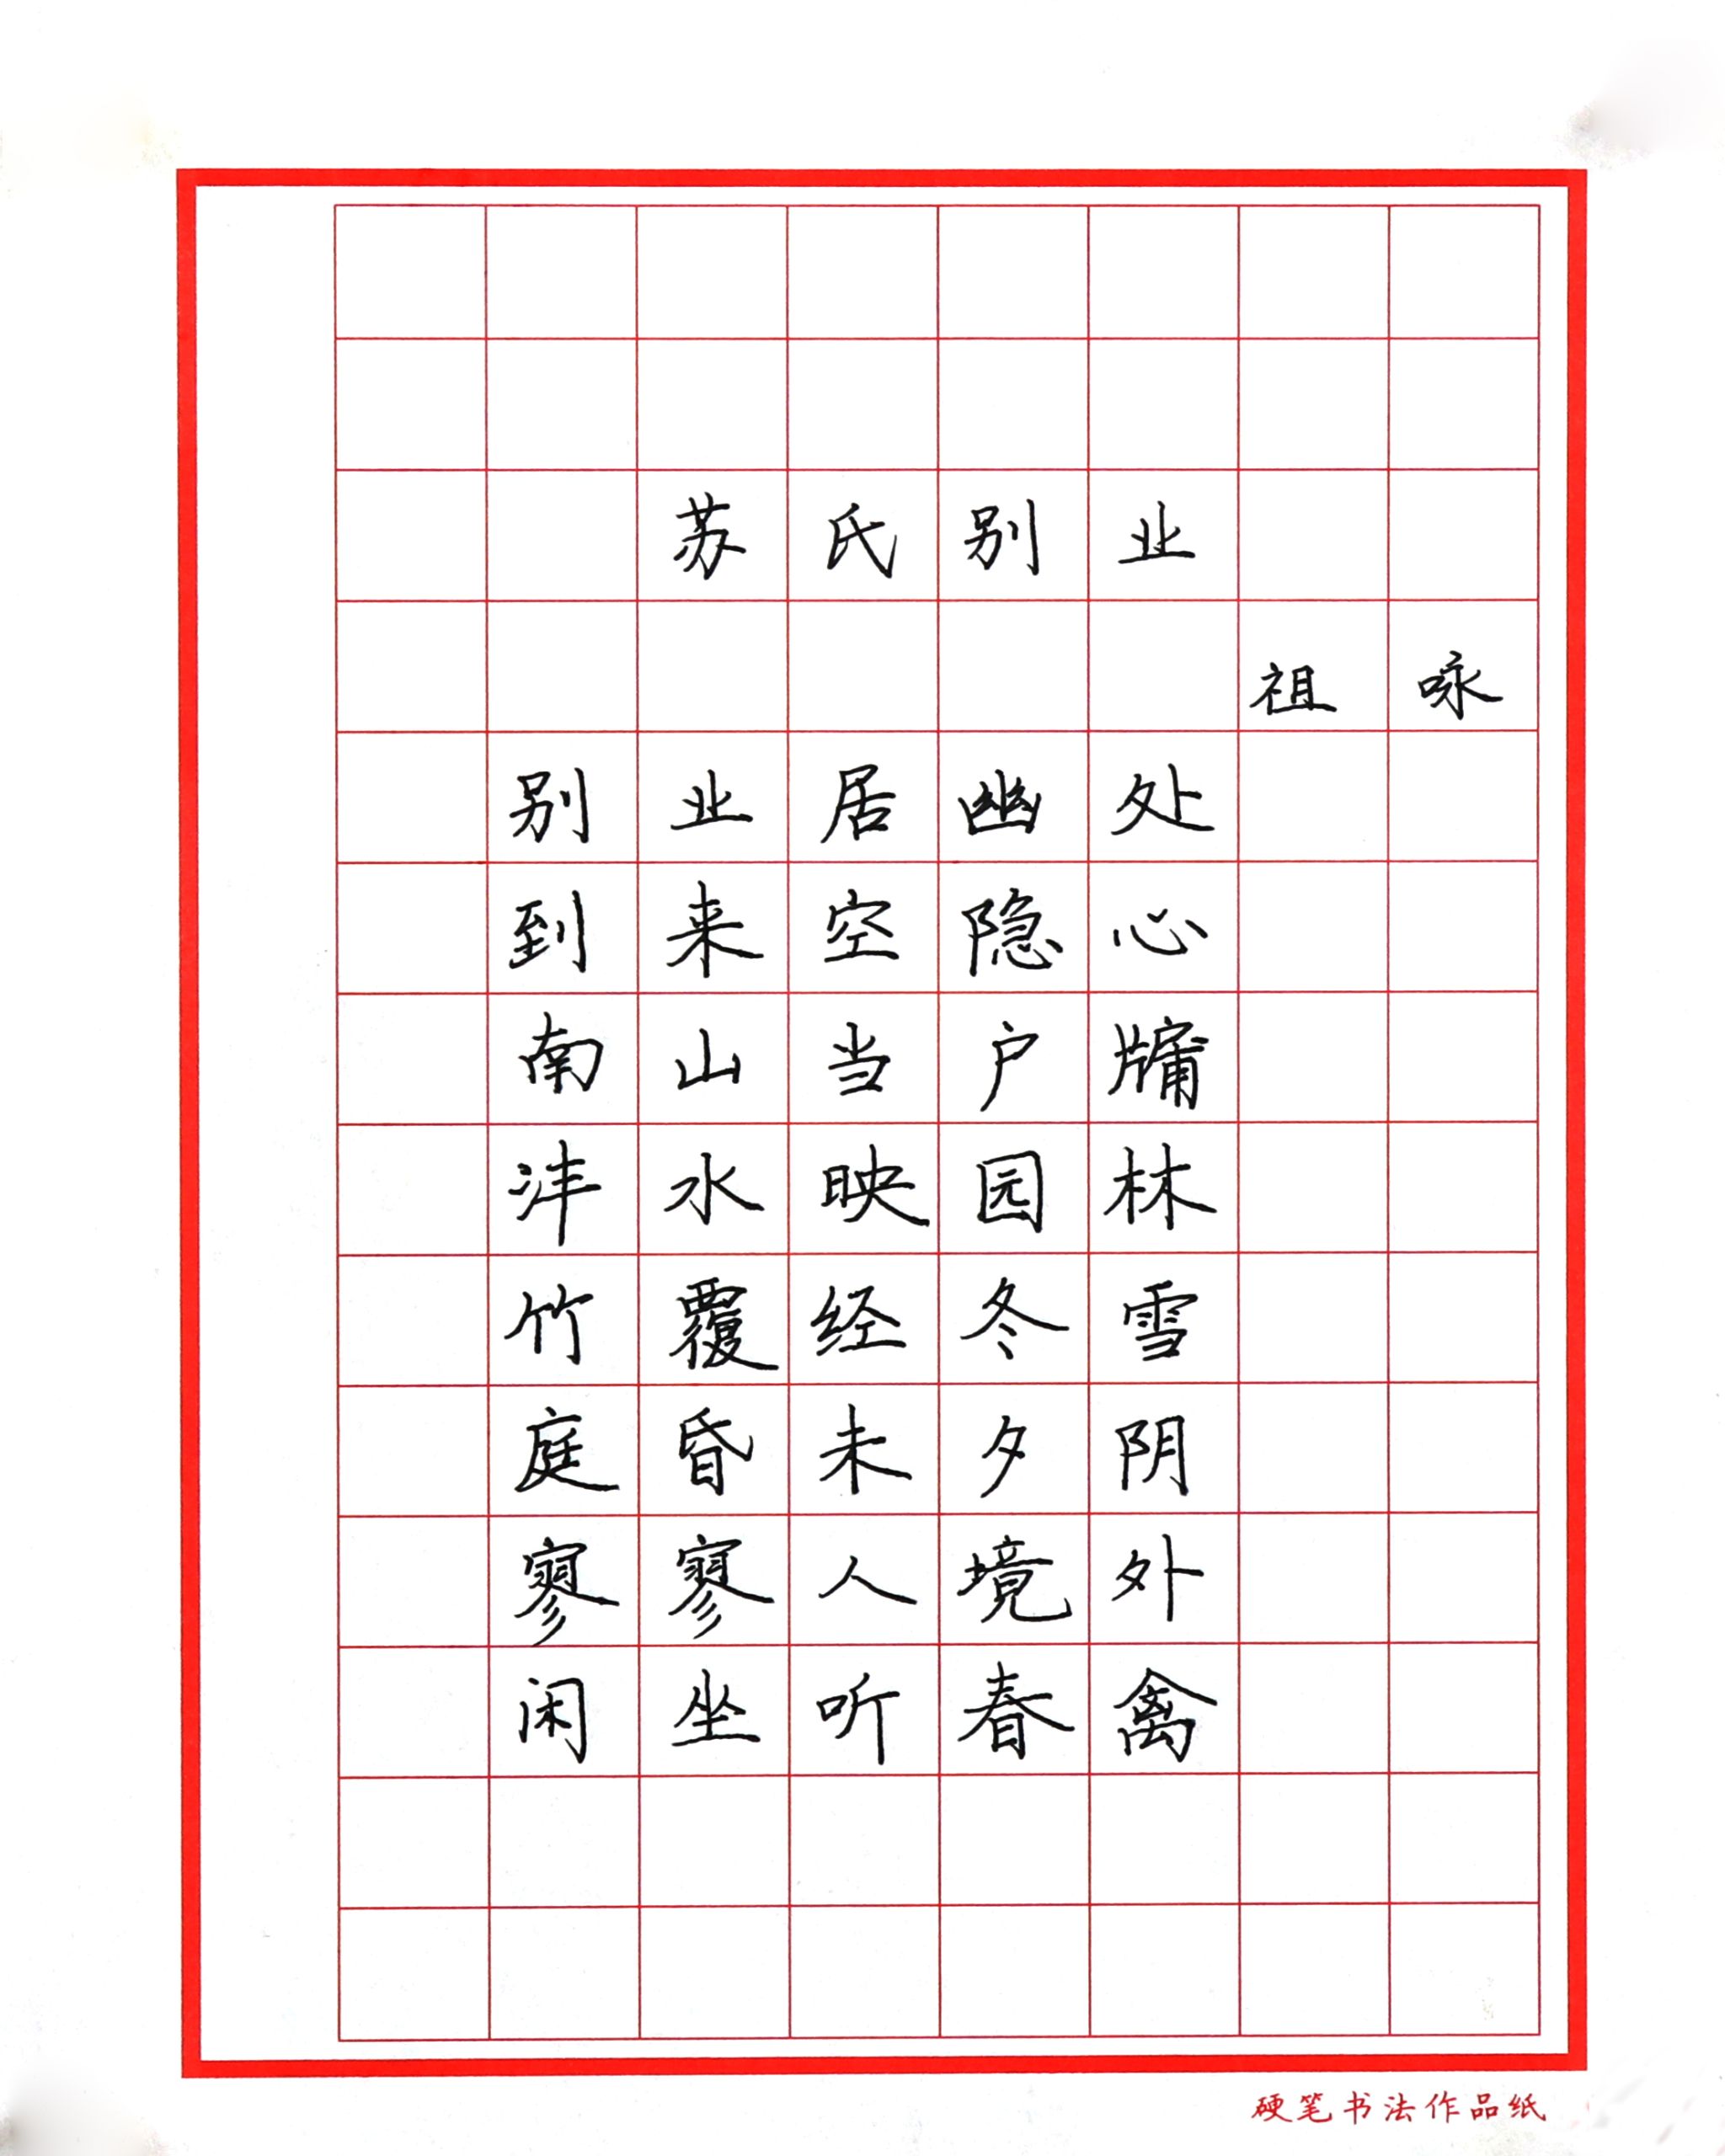 苏氏别业
祖咏
别业居幽处
到来空隐心
南山当户牖
沣水映园林
竹覆经冬雪
庭昏未夕阴
寥寥人境外
闲坐听春禽
硬笔书法作品纸